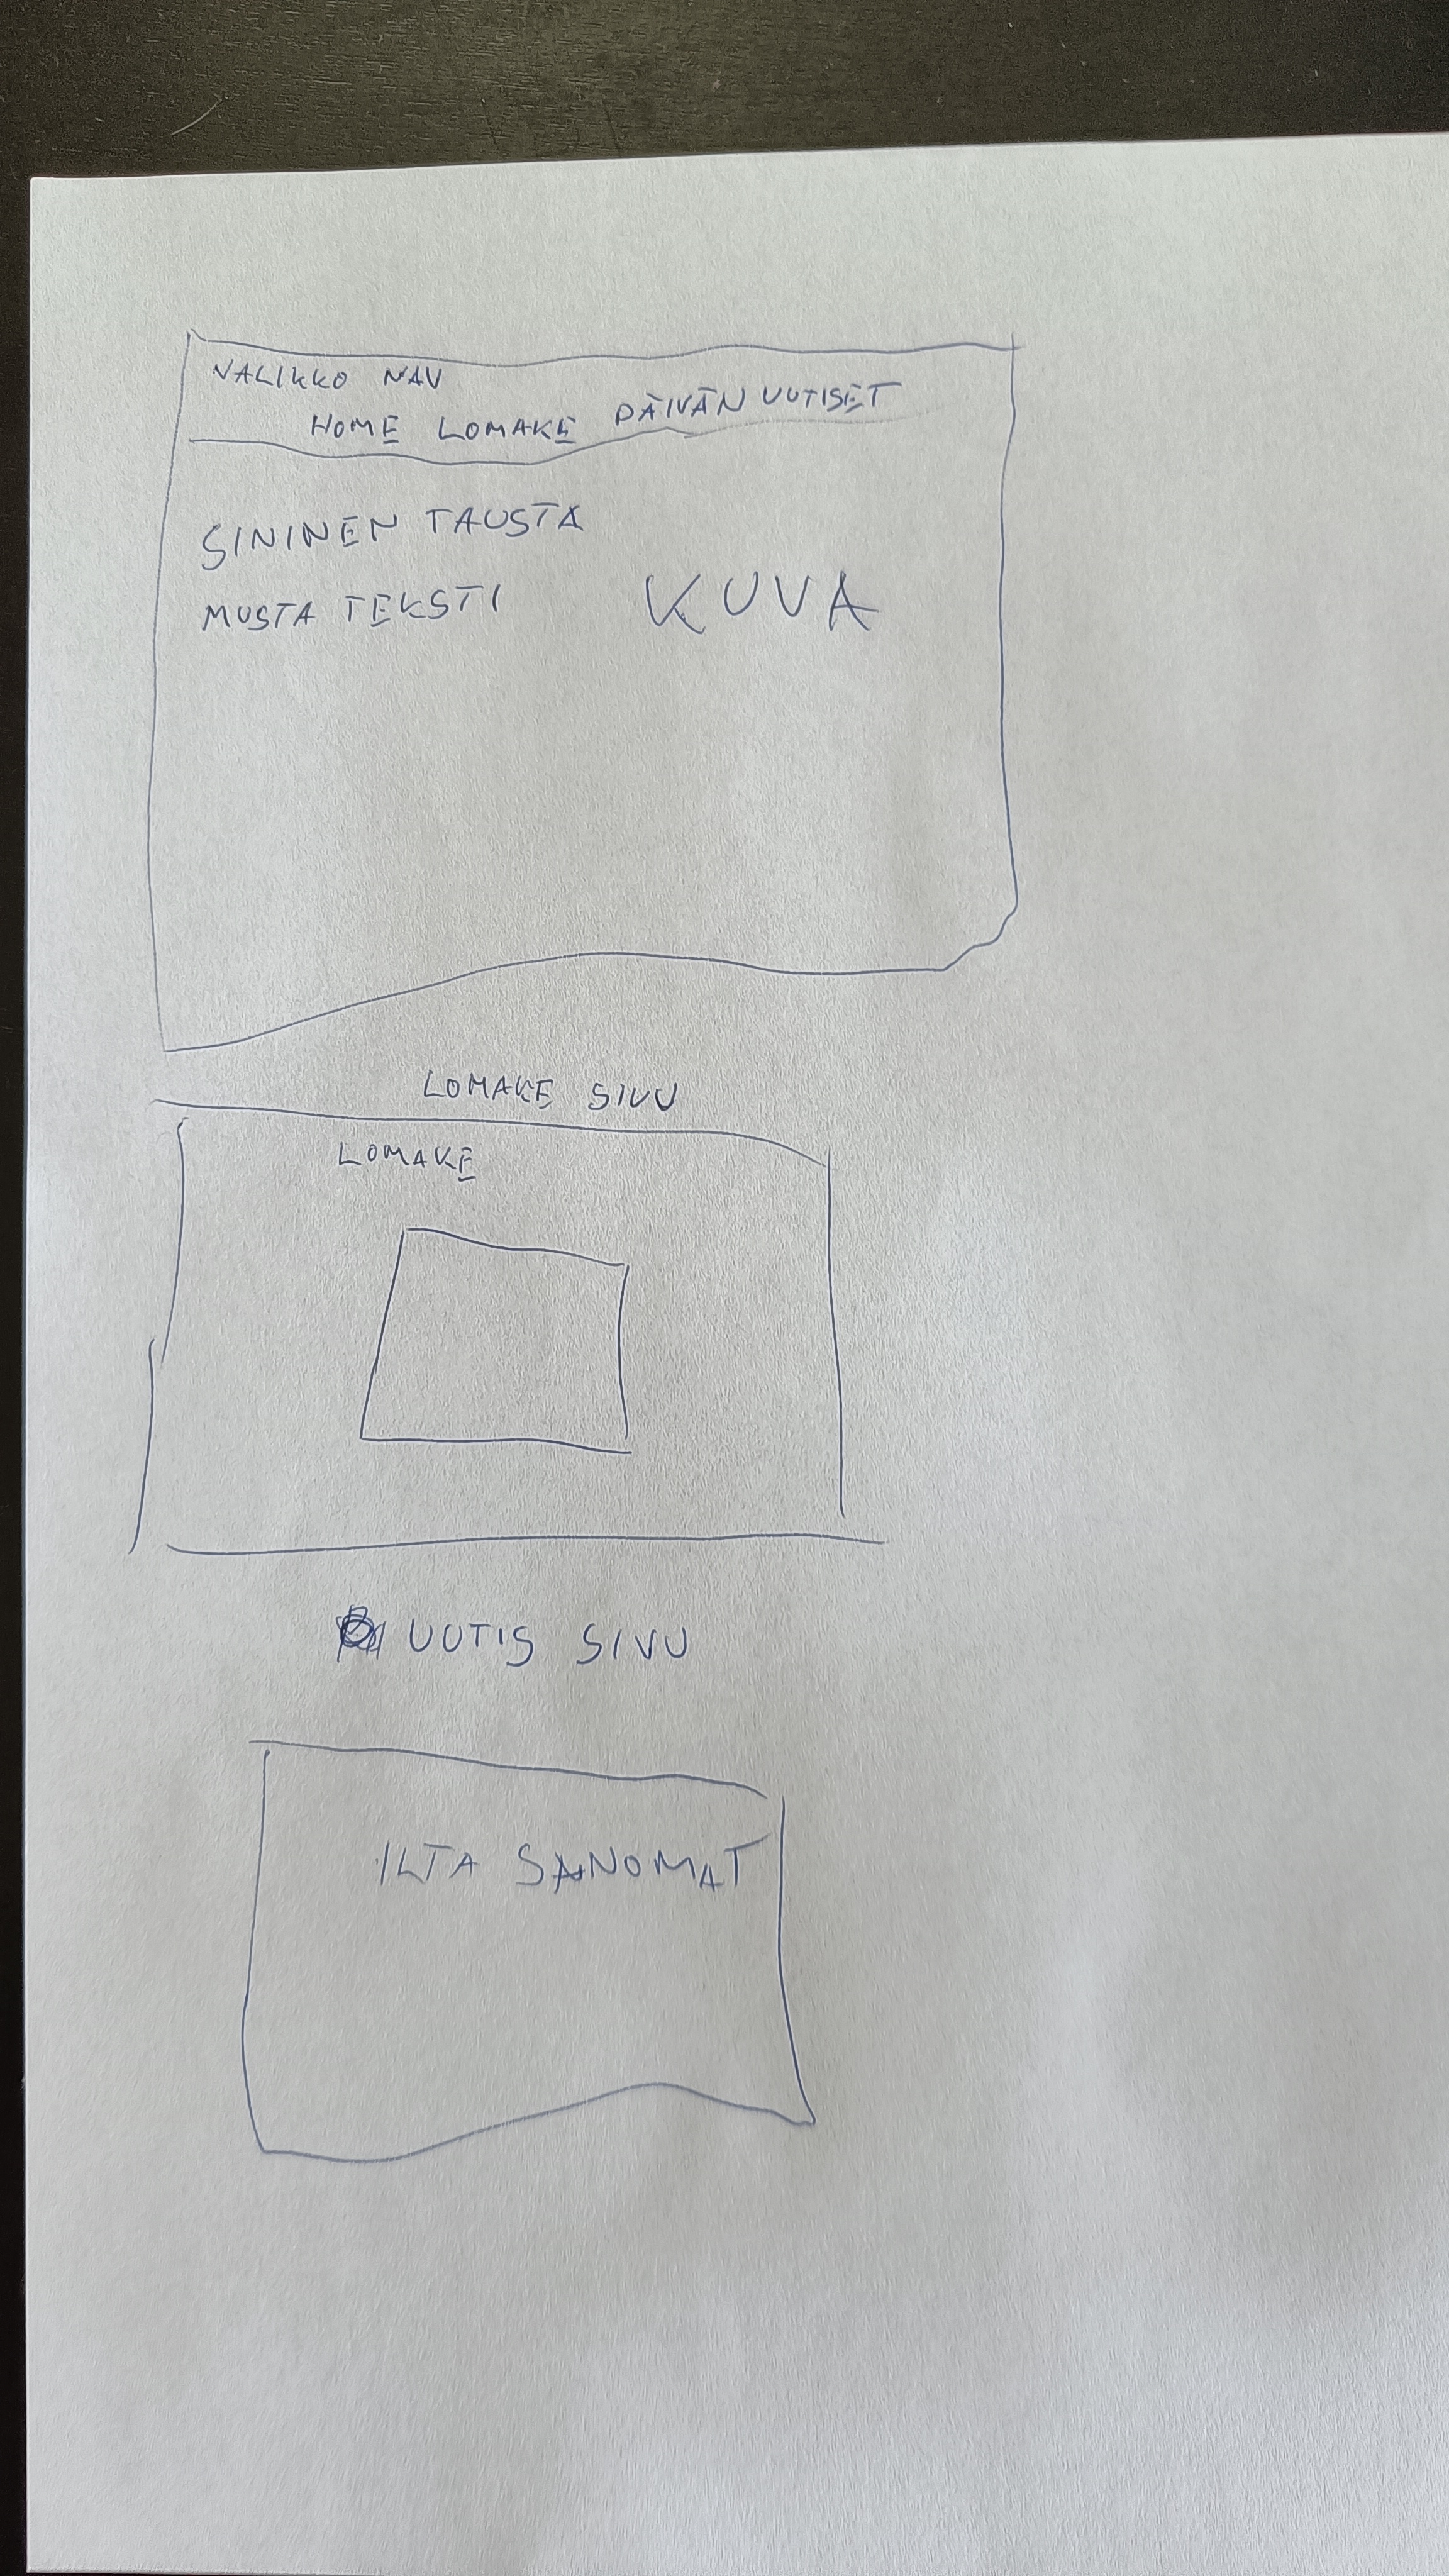 VALIKKO NAV
HOME LOMAKE PÄIVÄN UUTISET
SININEN TAUSTA
MUSTA TEKSTI KUVA
LOMAKE SIVU
LOMAKE
UUTIS SIVU
ILTA SANOMAT